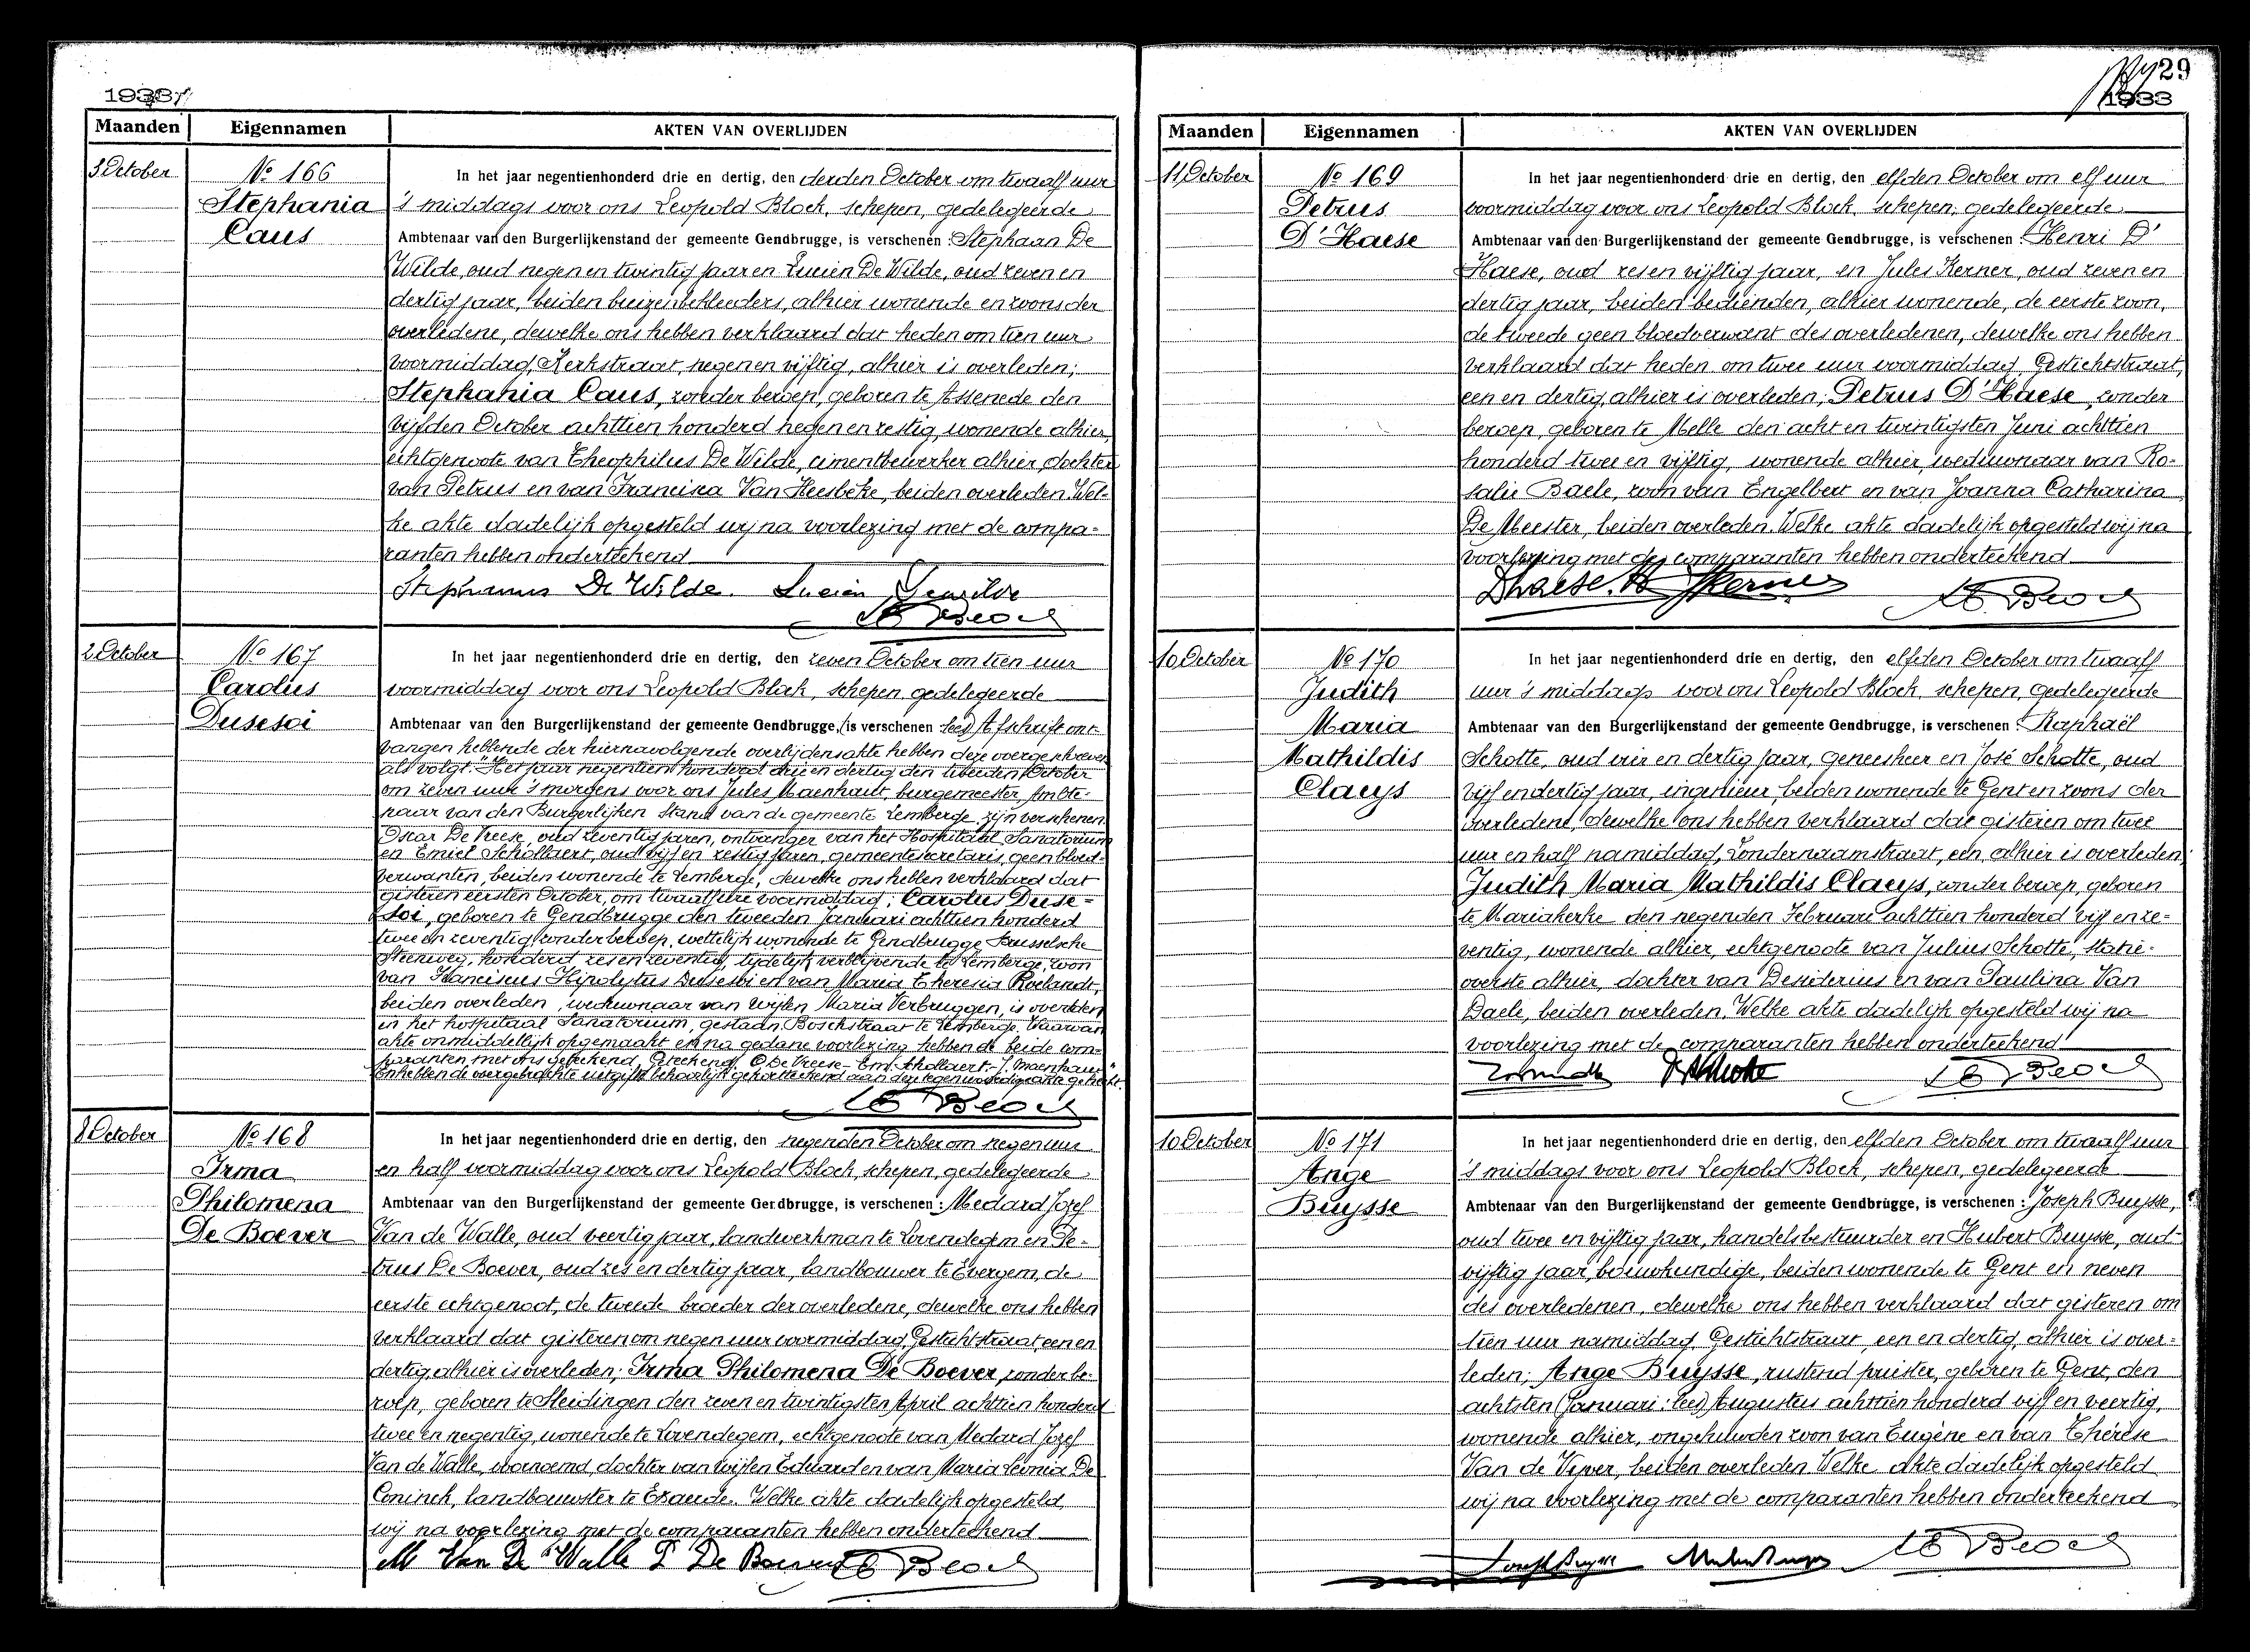 1933
Maanden Eigennamen AKTEN VAN OVERLIJDEN
3 October
No 166
Stephania
Caus
In het jaar negentienhonderd drie en dertig, den derden October om twaalf uur
's middags voor ons Leopold Block, schepen, gedelegeerde
Ambtenaar van den Burgerlijkenstand der gemeente Gendbrugge, is verschenen : Stephaan De
Wilde, oud negen en twintig jaar en Lucien De Wilde, oud zeven en
dertig jaar, beiden buizenbekleeders, alhier wonende en zoons der
overledene, dewelke ons hebben verklaard dat heden om tien uur
voormiddag, Kerkstraat, negen en vijftig, alhier is overleden;
Stephania Caus, zonder beroep, geboren te Assenede den
vijfden October achttien honderd negen en zestig, wonende alhier,
echtgenoote van Theophilus De Wilde, cimentbewerker alhier, dochter
van Petrus en van Francisca Van Heesbeke, beiden overleden. Wel-
ke akte dadelijk opgesteld wij na voorlezing met de compa-
ranten hebben onderteekend
Stephanus De Wilde. Lucien Dewilde
L Block
2 October
No 167
Carolus
Dusesoi
In het jaar negentienhonderd drie en dertig, den zeven October om tien uur
voormiddag voor ons Leopold Block, schepen, gedelegeerde
Ambtenaar van den Burgerlijkenstand der gemeente Gendbrugge, (is verschenen lees) Afschrift ont-
vangen hebbende der hiernavolgende overlijdensakte hebben deze overgeschreven
als volgt: "Het jaar negentien honderd drie en dertig den tweeden October
om zeven ure 's morgens voor ons Jules Maenhaut, burgemeester Ambte-
naar van den Burgerlijken Stand van de gemeente Lemberge zijn verschenen
Oscar De Vreese, oud zeventig jaren, ontvanger van het Hospitaal Sanatorium
en Emiel Schollaert, oud vijf en zestig jaren, gemeentesecretaris, geen bloed-
verwanten, beiden wonende te Lemberge, dewelke ons hebben verklaard dat
gisteren eersten October, om twaalf ure voormiddag; Carolus Duse-
soi, geboren te Gendbrugge den tweeden Januari achttien honderd
twee en zeventig, zonder beroep, wettelijk wonende te Gendbrugge Brusselsche
Steenweg, honderd zes en zeventig, tijdelijk verblijvende te Lemberge, zoon
van Franciscus Hipolytus Dusesoi en van Maria Theresia Roelandt,
beiden overleden, weduwnaar van wijlen Maria Verbruggen, is overleden
in het hospitaal Sanatorium, gestaan Boschstraat te Lemberge. Waarvan
akte onmiddellijk opgemaakt en na gedane voorlezing hebben de beide com-
paranten met ons geteekend. Geteekend: O De Vreese - Em. Schollaert - J. Maenhaut"
En hebben de overgebrachte uitgifte behoorlijk gekortteekend aan den tegenwoordige akte gehecht
L Block
8 October
No 168
Irma
Philomena
De Boever
In het jaar negentienhonderd drie en dertig, den negenden October om negen uur
en half voormiddag voor ons Leopold Block, schepen, gedelegeerde
Ambtenaar van den Burgerlijkenstand der gemeente Gendbrugge, is verschenen : Medard Jozef
Van de Walle, oud veertig jaar, landwerkman te Lovendegem en Pe-
trus De Boever, oud zes en dertig jaar, landbouwer te Evergem, de
eerste echtgenoot, de tweede broeder der overledene, dewelke ons hebben
verklaard dat gisteren om negen uur voormiddag, Gestichtstraat, een en
dertig, alhier is overleden; Irma Philomena De Boever, zonder be-
roep, geboren te Sleidingen den zeven en twintigsten April achttien honderd
twee en negentig, wonende te Lovendegem, echtgenoote van Medard Jozef
Van de Walle, voornoemd, dochter van wijlen Eduard en van Maria Leonia De
Coninck, landbouwster te Exaerde. Welke akte dadelijk opgesteld
wij na voorlezing met de comparanten hebben onderteekend
M Van De Walle P De Boever L Block
29
1933
Maanden Eigennamen AKTEN VAN OVERLIJDEN
11 October
No 169
Petrus
D'Haese
In het jaar negentienhonderd drie en dertig, den elfden October om elf uur
voormiddag voor ons Leopold Block, schepen, gedelegeerde
Ambtenaar van den Burgerlijkenstand der gemeente Gendbrugge, is verschenen : Henri D'
Haese, oud zes en vijftig jaar, en Jules Kerner, oud zeven en
dertig jaar, beiden bedienden, alhier wonende, de eerste zoon,
de tweede geen bloedverwant des overledenen, dewelke ons hebben
verklaard dat heden om twee uur voormiddag, Gestichtstraat,
een en dertig, alhier is overleden; Petrus D'Haese, zonder
beroep, geboren te Melle den acht en twintigsten Juni achttien
honderd twee en vijftig, wonende alhier, weduwnaar van Ro-
salie Baele, zoon van Engelbert en van Joanna Catharina
De Meester, beiden overleden. Welke akte dadelijk opgesteld wij na
voorlezing met de comparanten hebben onderteekend
Dhaese. H JKerner L Block
10 October
No 170
Judith
Maria
Mathildis
Claeys
In het jaar negentienhonderd drie en dertig, den elfden October om twaalf
uur 's middags voor ons Leopold Block, schepen, gedelegeerde
Ambtenaar van den Burgerlijkenstand der gemeente Gendbrugge, is verschenen : Raphaël
Schotte, oud drie en dertig jaar, geneesheer en José Schotte, oud
vijf en dertig jaar, ingenieur, beiden wonende te Gent en zoons der
overledene, dewelke ons hebben verklaard dat gisteren om twee
uur en half namiddag, Zondernaamstraat, een, alhier is overleden;
Judith Maria Mathildis Claeys, zonder beroep, geboren
te Mariakerke den negenden Februari achttien honderd vijf en ze-
ventig, wonende alhier, echtgenoote van Julius Schotte, statie-
overste alhier, dochter van Desiderius en van Paulina Van
Daele, beiden overleden. Welke akte dadelijk opgesteld wij na
voorlezing met de comparanten hebben onderteekend
L Block
10 October
No 171
Ange
Buysse
In het jaar negentienhonderd drie en dertig, den elfden October om twaalf uur
's middags voor ons Leopold Block, schepen, gedelegeerde
Ambtenaar van den Burgerlijkenstand der gemeente Gendbrugge, is verschenen : Joseph Buysse,
oud twee en vijftig jaar, handelsbestuurder en Hubert Buysse, oud
vijftig jaar, bouwkundige, beiden wonende te Gent en neven
des overledenen, dewelke ons hebben verklaard dat gisteren om
tien uur namiddag, Gestichtstraat, een en dertig, alhier is over-
leden; Ange Buysse, rustend priester, geboren te Gent, den
achtsten (Januari: lees) Augustus achttien honderd vijf en veertig,
wonende alhier, ongehuwden zoon van Eugène en van Thérèse
Van de Vijver, beiden overleden. Welke akte dadelijk opgesteld
wij na voorlezing met de comparanten hebben onderteekend
Joseph Buysse L Block